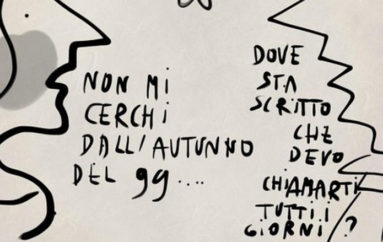 NON MI
CERCHI
DALL'AUTUNNO
DEL 99....
DOVE
STA
SCRITTO
CHE
DEVO
CHIAMARTI
TUTTI I
GIORNI ?